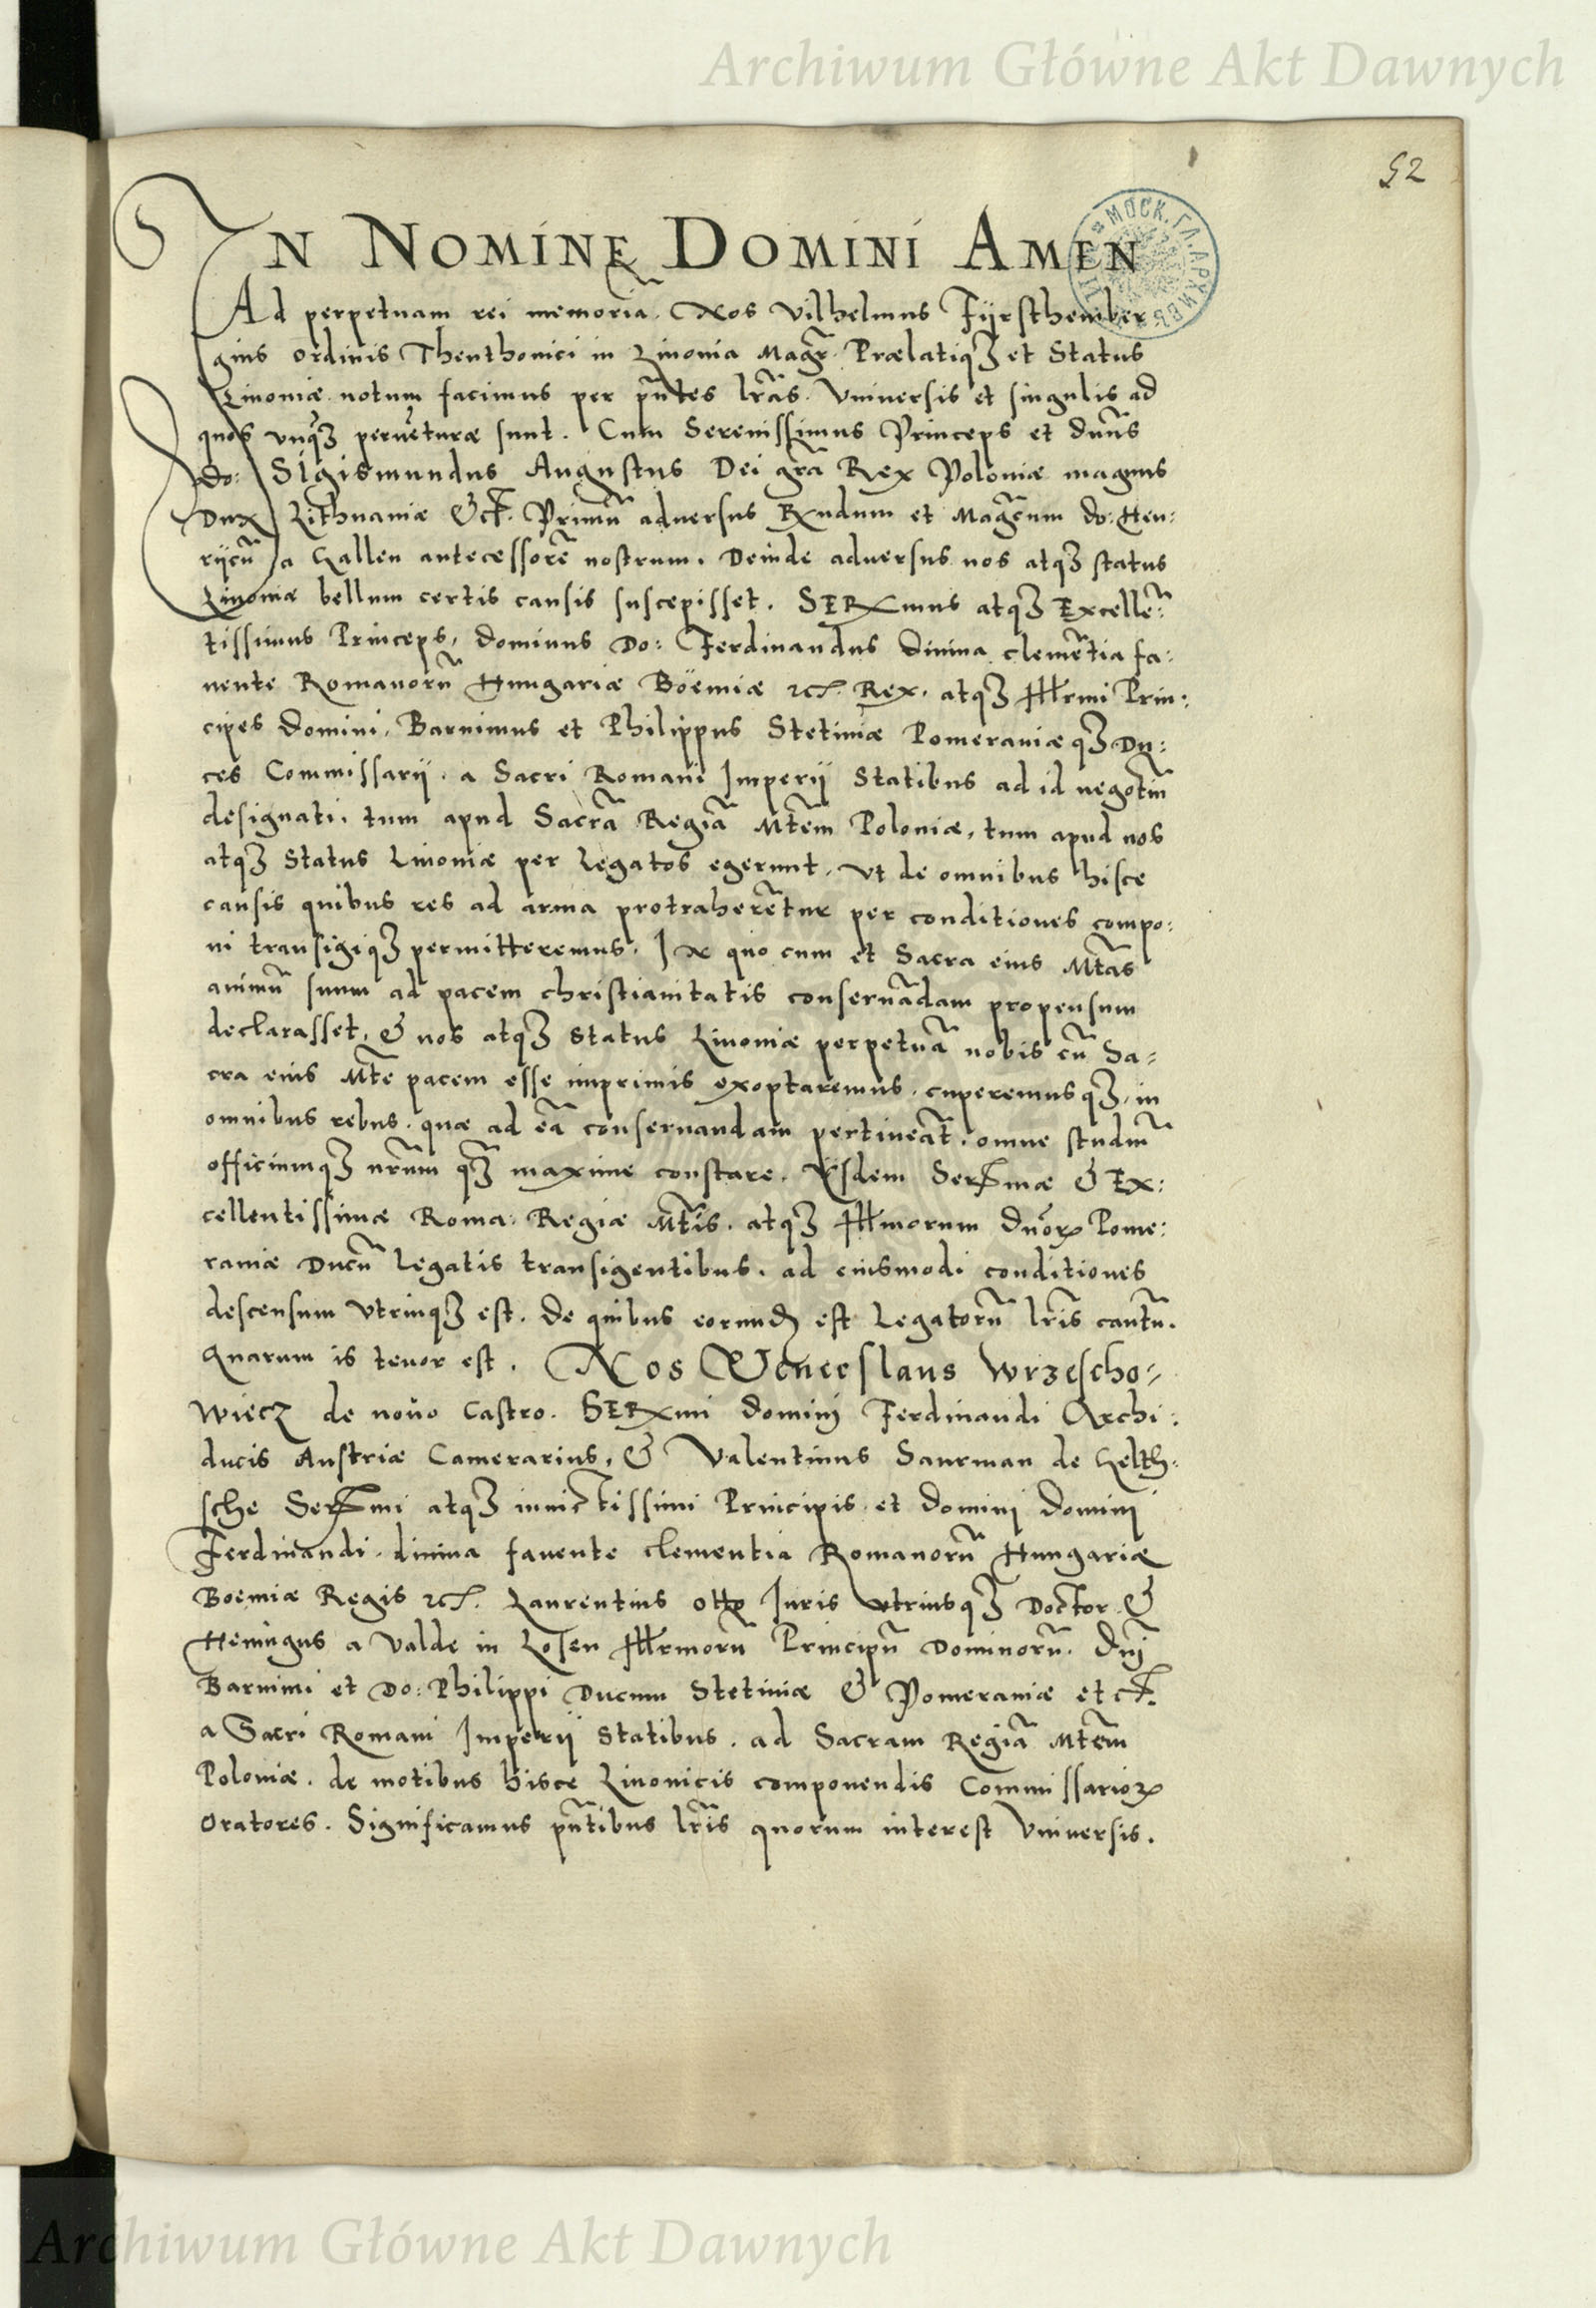 Archiwum Główne Akt Dawnych
52
IN NOMINE DOMINI AMEN
МОСК. ГЛ. АРХИВЪ
Ad perpetuam rei memoriã. Nos Vilhelmus Fÿrsthember
gius ordinis Theuthonici in Liuonia Magr̃. Prælatiqꝫ et Status
Liuoniæ notum facimus per pñtes lrãs. Vniuersis et singulis ad
quos vnqꝫ peruẽturæ sunt. Cum Serenissimus Princeps et dnũs
do: Sigismundus Augustus Dei grã Rex Poloniæ magnus
Dux Lithuaniæ &ct. Primũ aduersus Rxndum et Magcũm do: Hen:
rijcũ a Gallen antecessorẽ nostrum. Deinde aduersus nos atqꝫ status
Liuoniæ bellum certis causis suscepisset. SERxmus atqꝫ Excellẽ:
tissimus Princeps, dominus Do: Ferdinandus diuina clemẽtia fa:
uente Romanorũ Hungariæ Böemiæ ꝛct. Rex. atqꝫ Illrmi Prin:
cipes domini, Barnimus et Philippus Stetiniæ Pomeraniæqꝫ Du:
ces Commissarij. a Sacri Romani Imperij Statibus ad id negotiũ
designati, tum apud Sacrã Regiã Mtẽm Poloniæ, tum apud nos
atqꝫ Status Liuoniæ per Legatos egerunt, Vt de omnibus hisce
causis quibus res ad arma protraherẽtur per conditiones compo:
ni transigiqꝫ permitteremus. Ex quo cum et Sacra eius Mtãs
animũ suum ad pacem christianitatis conseruãdam propensum
declarasset, & nos atqꝫ Status Liuoniæ perpetuã nobis cũ Sa-
cra eius Mtẽ pacem esse imprimis exoptaremus, cuperemusqꝫ, in
omnibus rebus. quæ ad eã conseruandam pertineãt. omne studiũ
officiumqꝫ nrũm qꝫ̃ maxime constare. Iisdem Serxmæ & Ex:
cellentissimæ Roma: Regiæ Mtĩs. atqꝫ Illmorum Dnõrꝫ Pome:
raniæ Ducũ legatis transigentibus. ad eiusmodi conditiones
descensum vtrinqꝫ est. de quibus eorund est Legatorũ lrĩs cautũ.
Quarum is tenor est. Nos Wenceslaus Wrzescho-
wiecz de nouo Castro. SERxmi domini Ferdinandi Archi:
ducis Austriæ Camerarius, & Valentinus Saurman de Gelth:
sche Serxmi atqꝫ inuictissimi Principis et domini domini
Ferdinandi. diuina fauente clementia Romanorũ Hungariæ
Boemiæ Regis ꝛct. Laurentius Otto Iuris vtriusqꝫ Doctor &
Heningus a Valde in Losen Illrmorũ Principũ Dominorũ. Dnĩ
Barnimi et Do: Philippi Ducum Stetiniæ & Pomeraniæ etct.
a Sacri Romani Imperij Statibus. ad Sacram Regiã Mtẽm
Poloniæ. de motibus hisce Liuonicis componendis Commissarioꝝ
Oratores. Significamus pñtibus lrĩs quorum interest Vniuersis.
Archiwum Główne Akt Dawnych